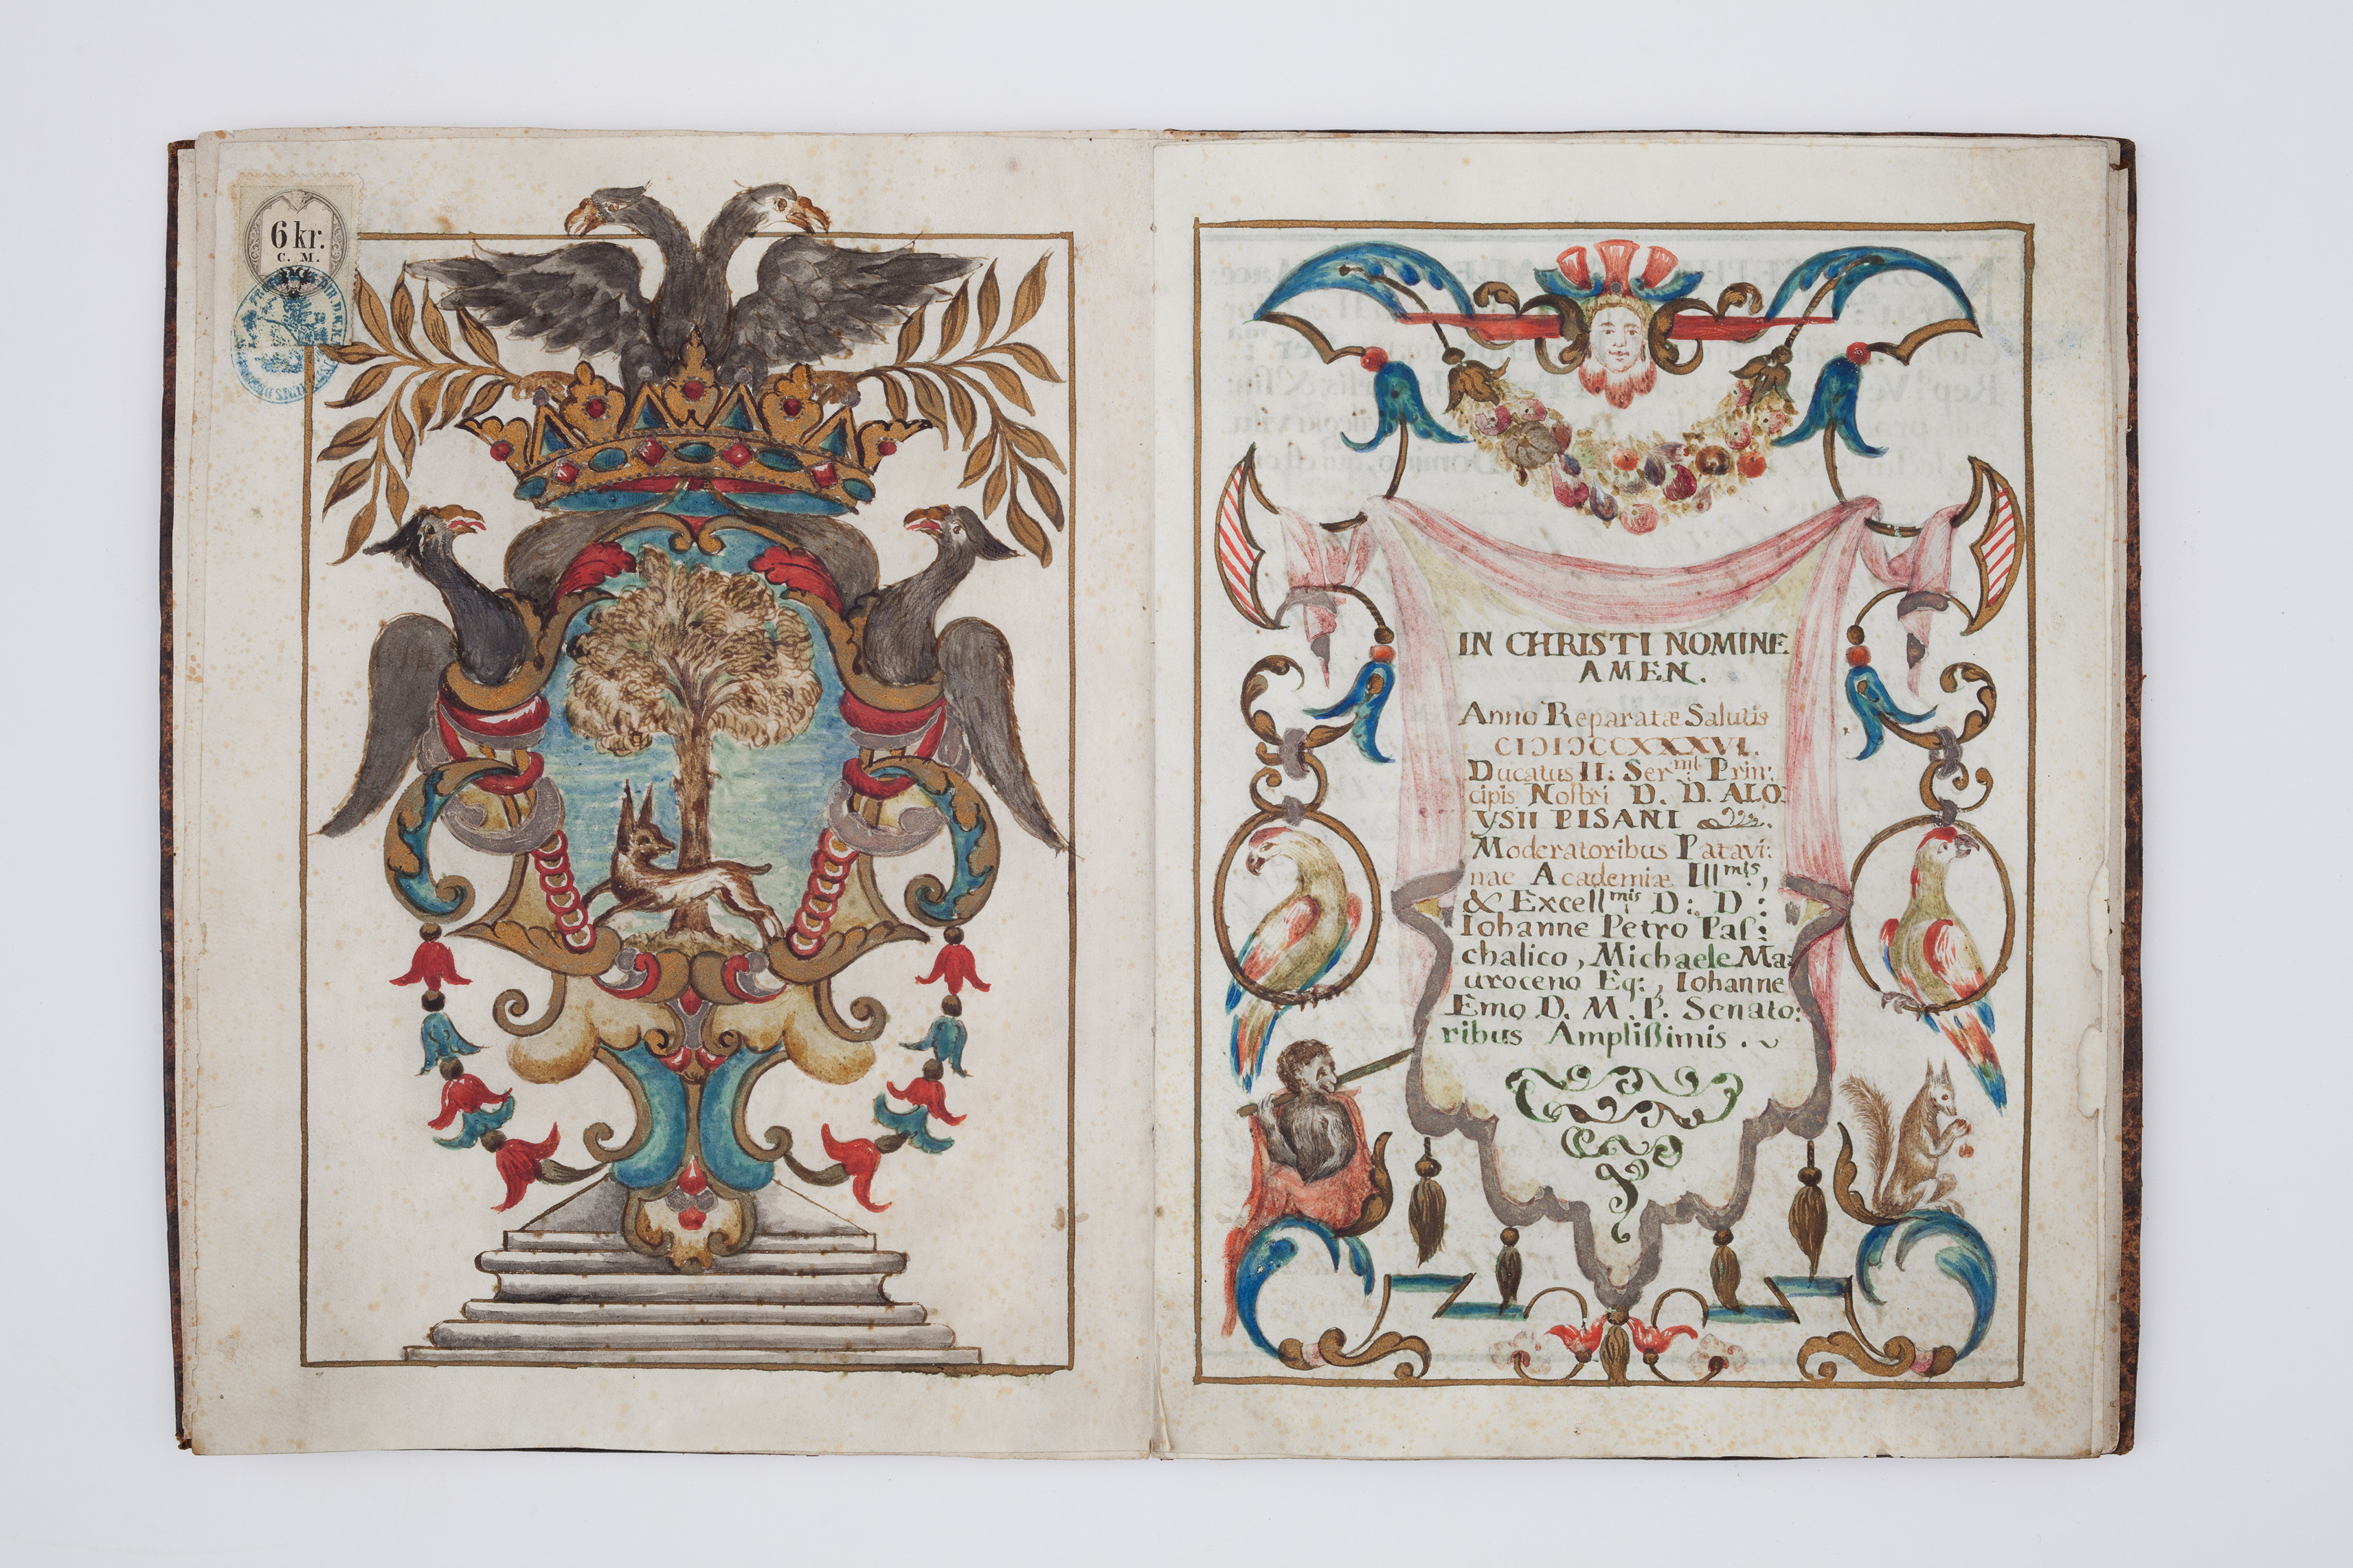 6 kr.
C. M.
IN CHRISTI NOMINE
AMEN.
Anno Reparatæ Salutis
CIƆIƆCCXXXVI.
Ducatus II: Ser.mi Prin:
cipis Nostri D. D. ALO:
YSII PISANI
Moderatoribus Patavi:
nae Academiæ Ill.mis,
& Excell.mis D: D:
Iohanne Petro Pas:
chalico, Michaele Ma:
uroceno Eq:, Iohanne
Emo D. M. P. Senato:
ribus Amplißimis.